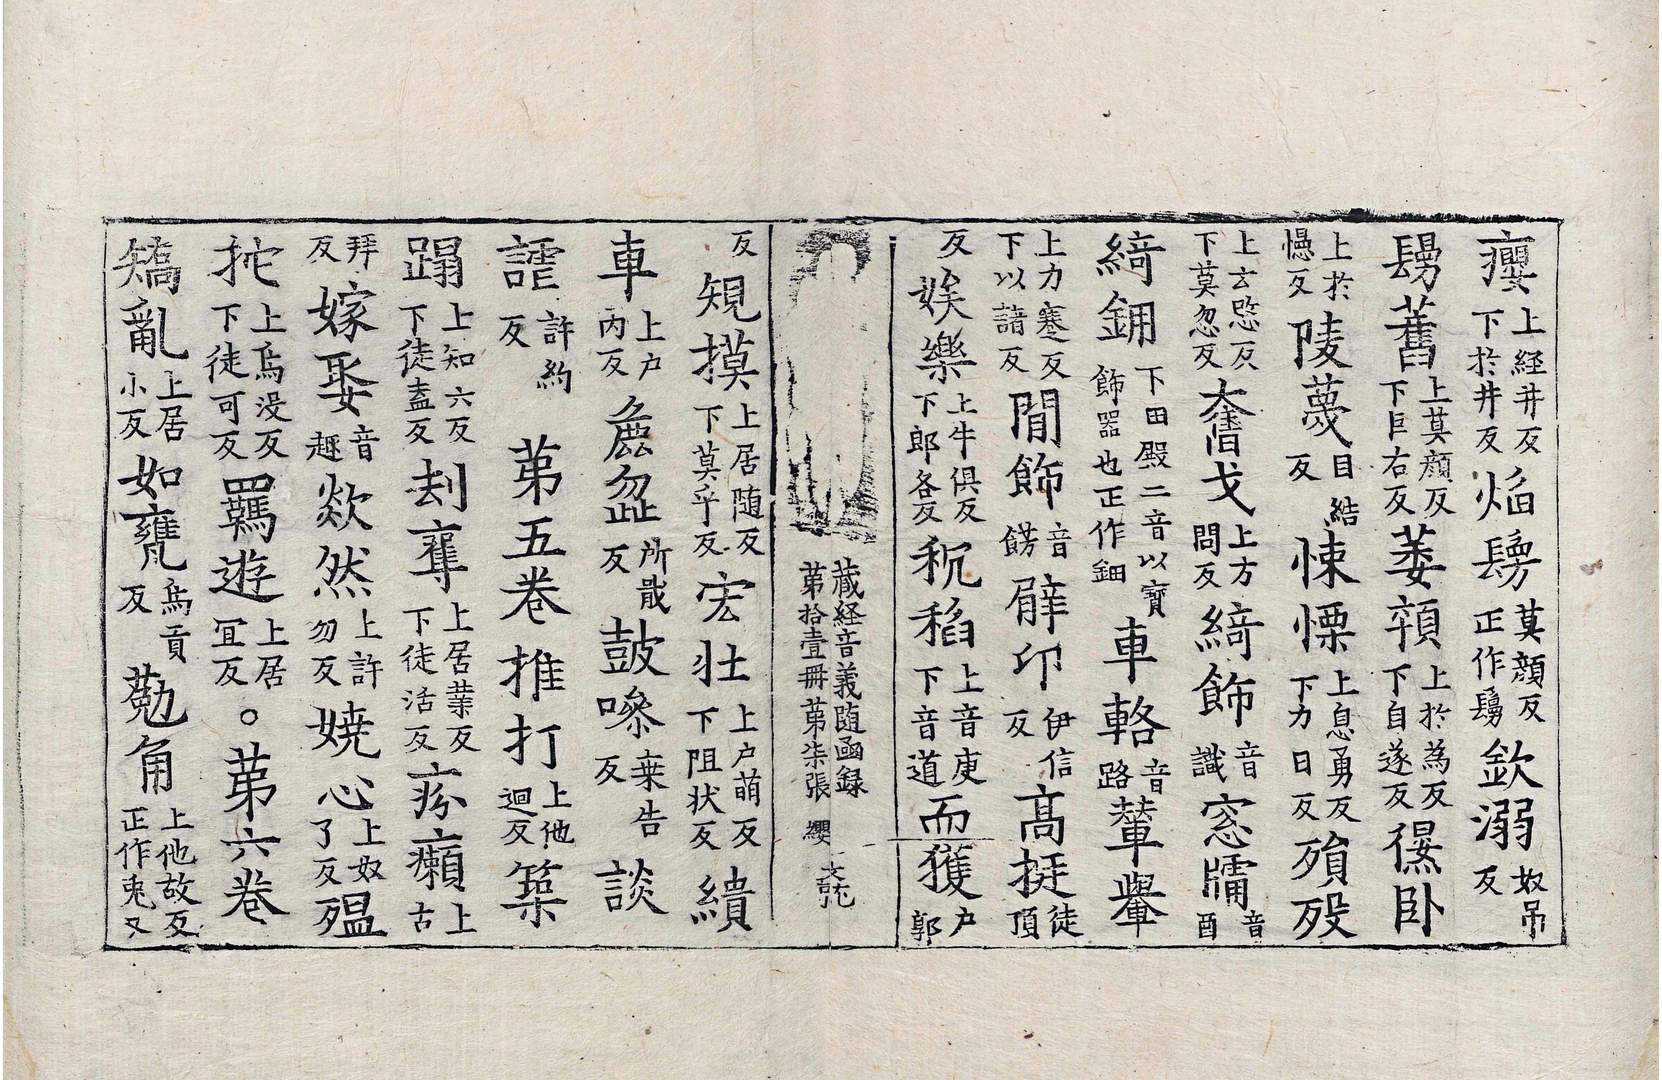 癭上經井反下於井反焰鬘莫顔反正作鬘欿溺奴吊反
鬘舊上莫顔反下巨右反萎顇上於為反下自遂反㒹臥
上於㥯反陵蔑目結反悚慄上息勇反下力日反殞歿
上云愍反下莫忽反奮戈上方問反綺飾音識窓牖音酉
綺鈿下田殿二音以寶飾器也正作鈿車輅音路輦轝
上力蹇反下以諸反閒飾音餝䍽印伊信反髙挺徒頂
反娛樂上牛俱反下郎各反秔稻上音庚下音道而獲户郭
藏経音義随函録
第拾壹冊第柒張 纓
反規摸上居随反下莫乎反宏壯上户萌反下阻状反繢
車上户内反麁澁所戢反鼓噪桒告反談
謔許約反第五卷推打上他迴反築
蹋上知六反下徒盍反刦奪上居業反下徒活反疥癩上古
拜反嫁娶音趣欻然上許勿反嬈心上奴了反殟
扡上烏没反下徒可反羈遊上居冝反。第六卷
矯亂上居小反如甕烏貢反䓟角上他故反正作兎又